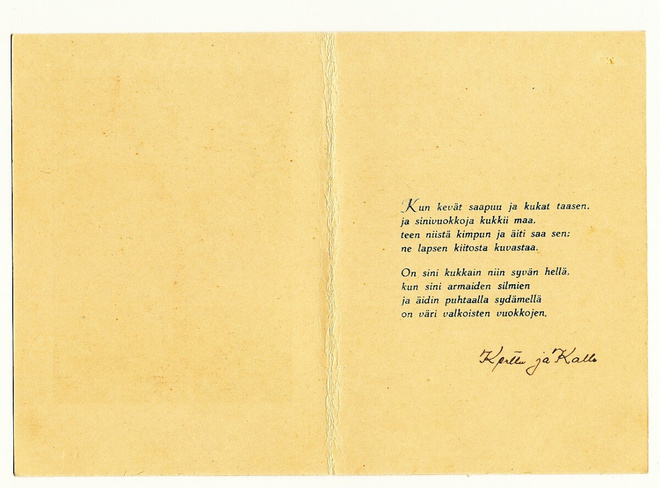 Kun kevät saapuu ja kukat taasen,
ja sinivuokkoja kukkii maa,
teen niistä kimpun ja äiti saa sen;
ne lapsen kiitosta kuvastaa.
On sini kukkain niin syvän hellä,
kun sini armaiden silmien
ja äidin puhtaalla sydämellä
on väri valkoisten vuokkojen.
Kerttu ja Kalle